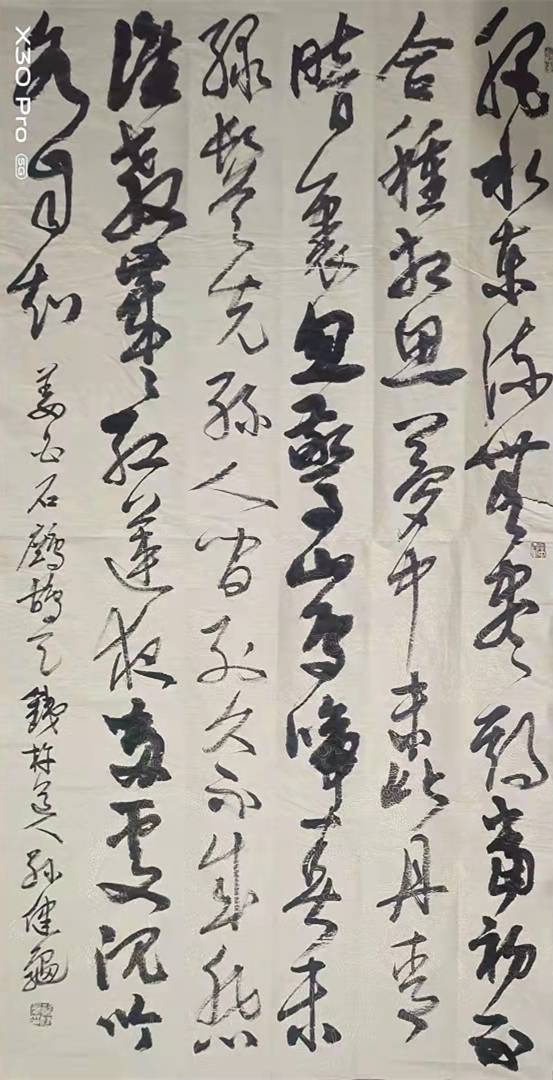 肥水東流無盡期當初不
合種相思夢中未比丹青
暗裏忽驚山鳥啼春未
綠鬢先絲人間別久不成悲
誰教歲々紅蓮夜兩處沉吟
各自知 姜白石鷓鴣天 鐵杵道人孫健
X30 Pro 5G